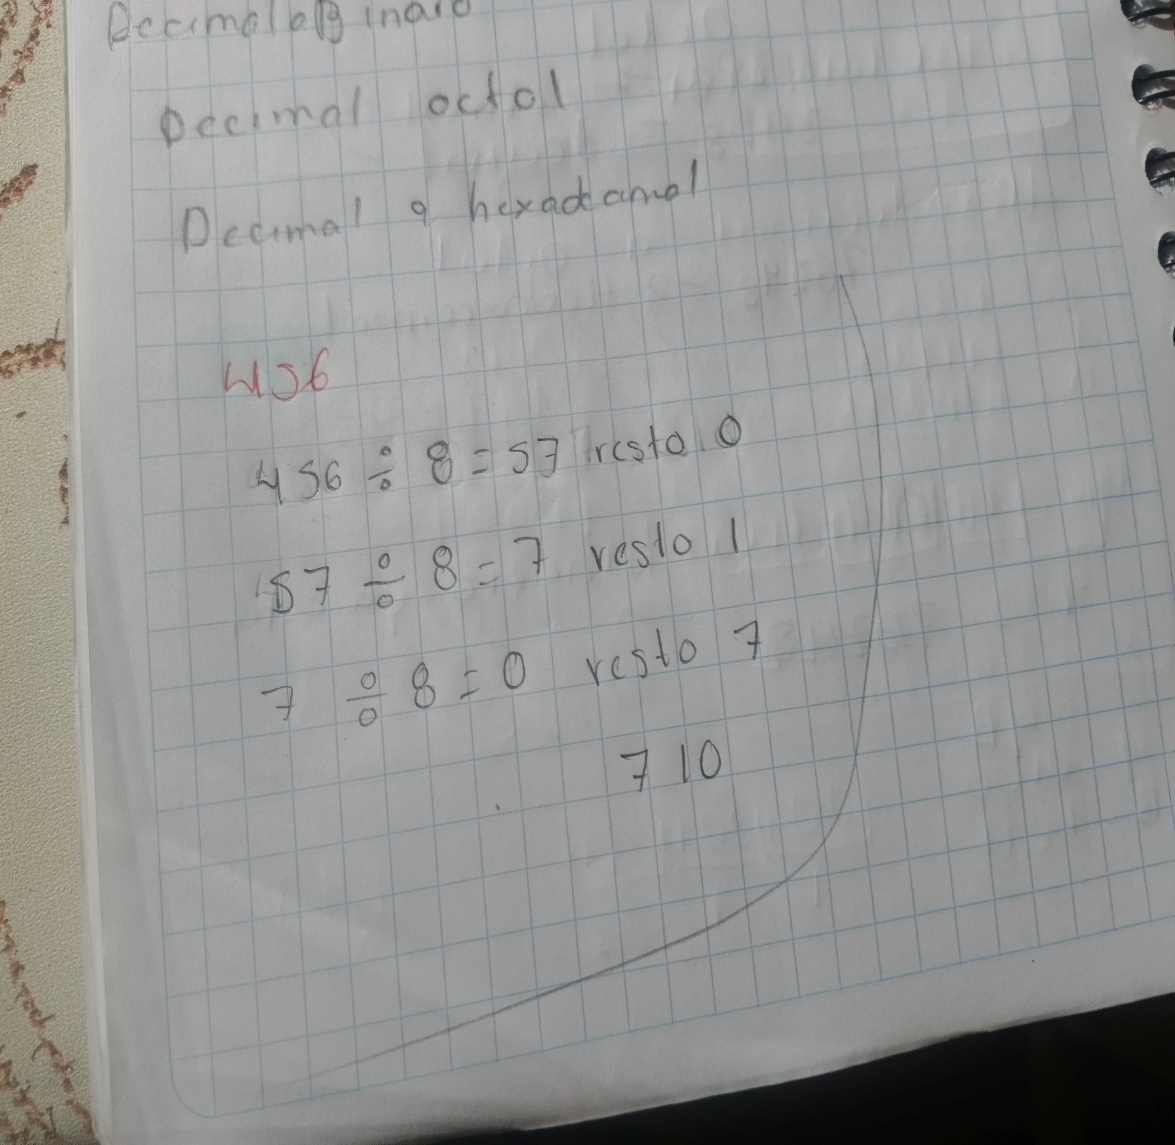 Decimal a Binario
Decimal octal
Decimal a hexadcamal
456
456 ÷ 8 = 57 resto 0
57 ÷ 8 = 7 resto 1
7 ÷ 8 = 0 resto 7
710